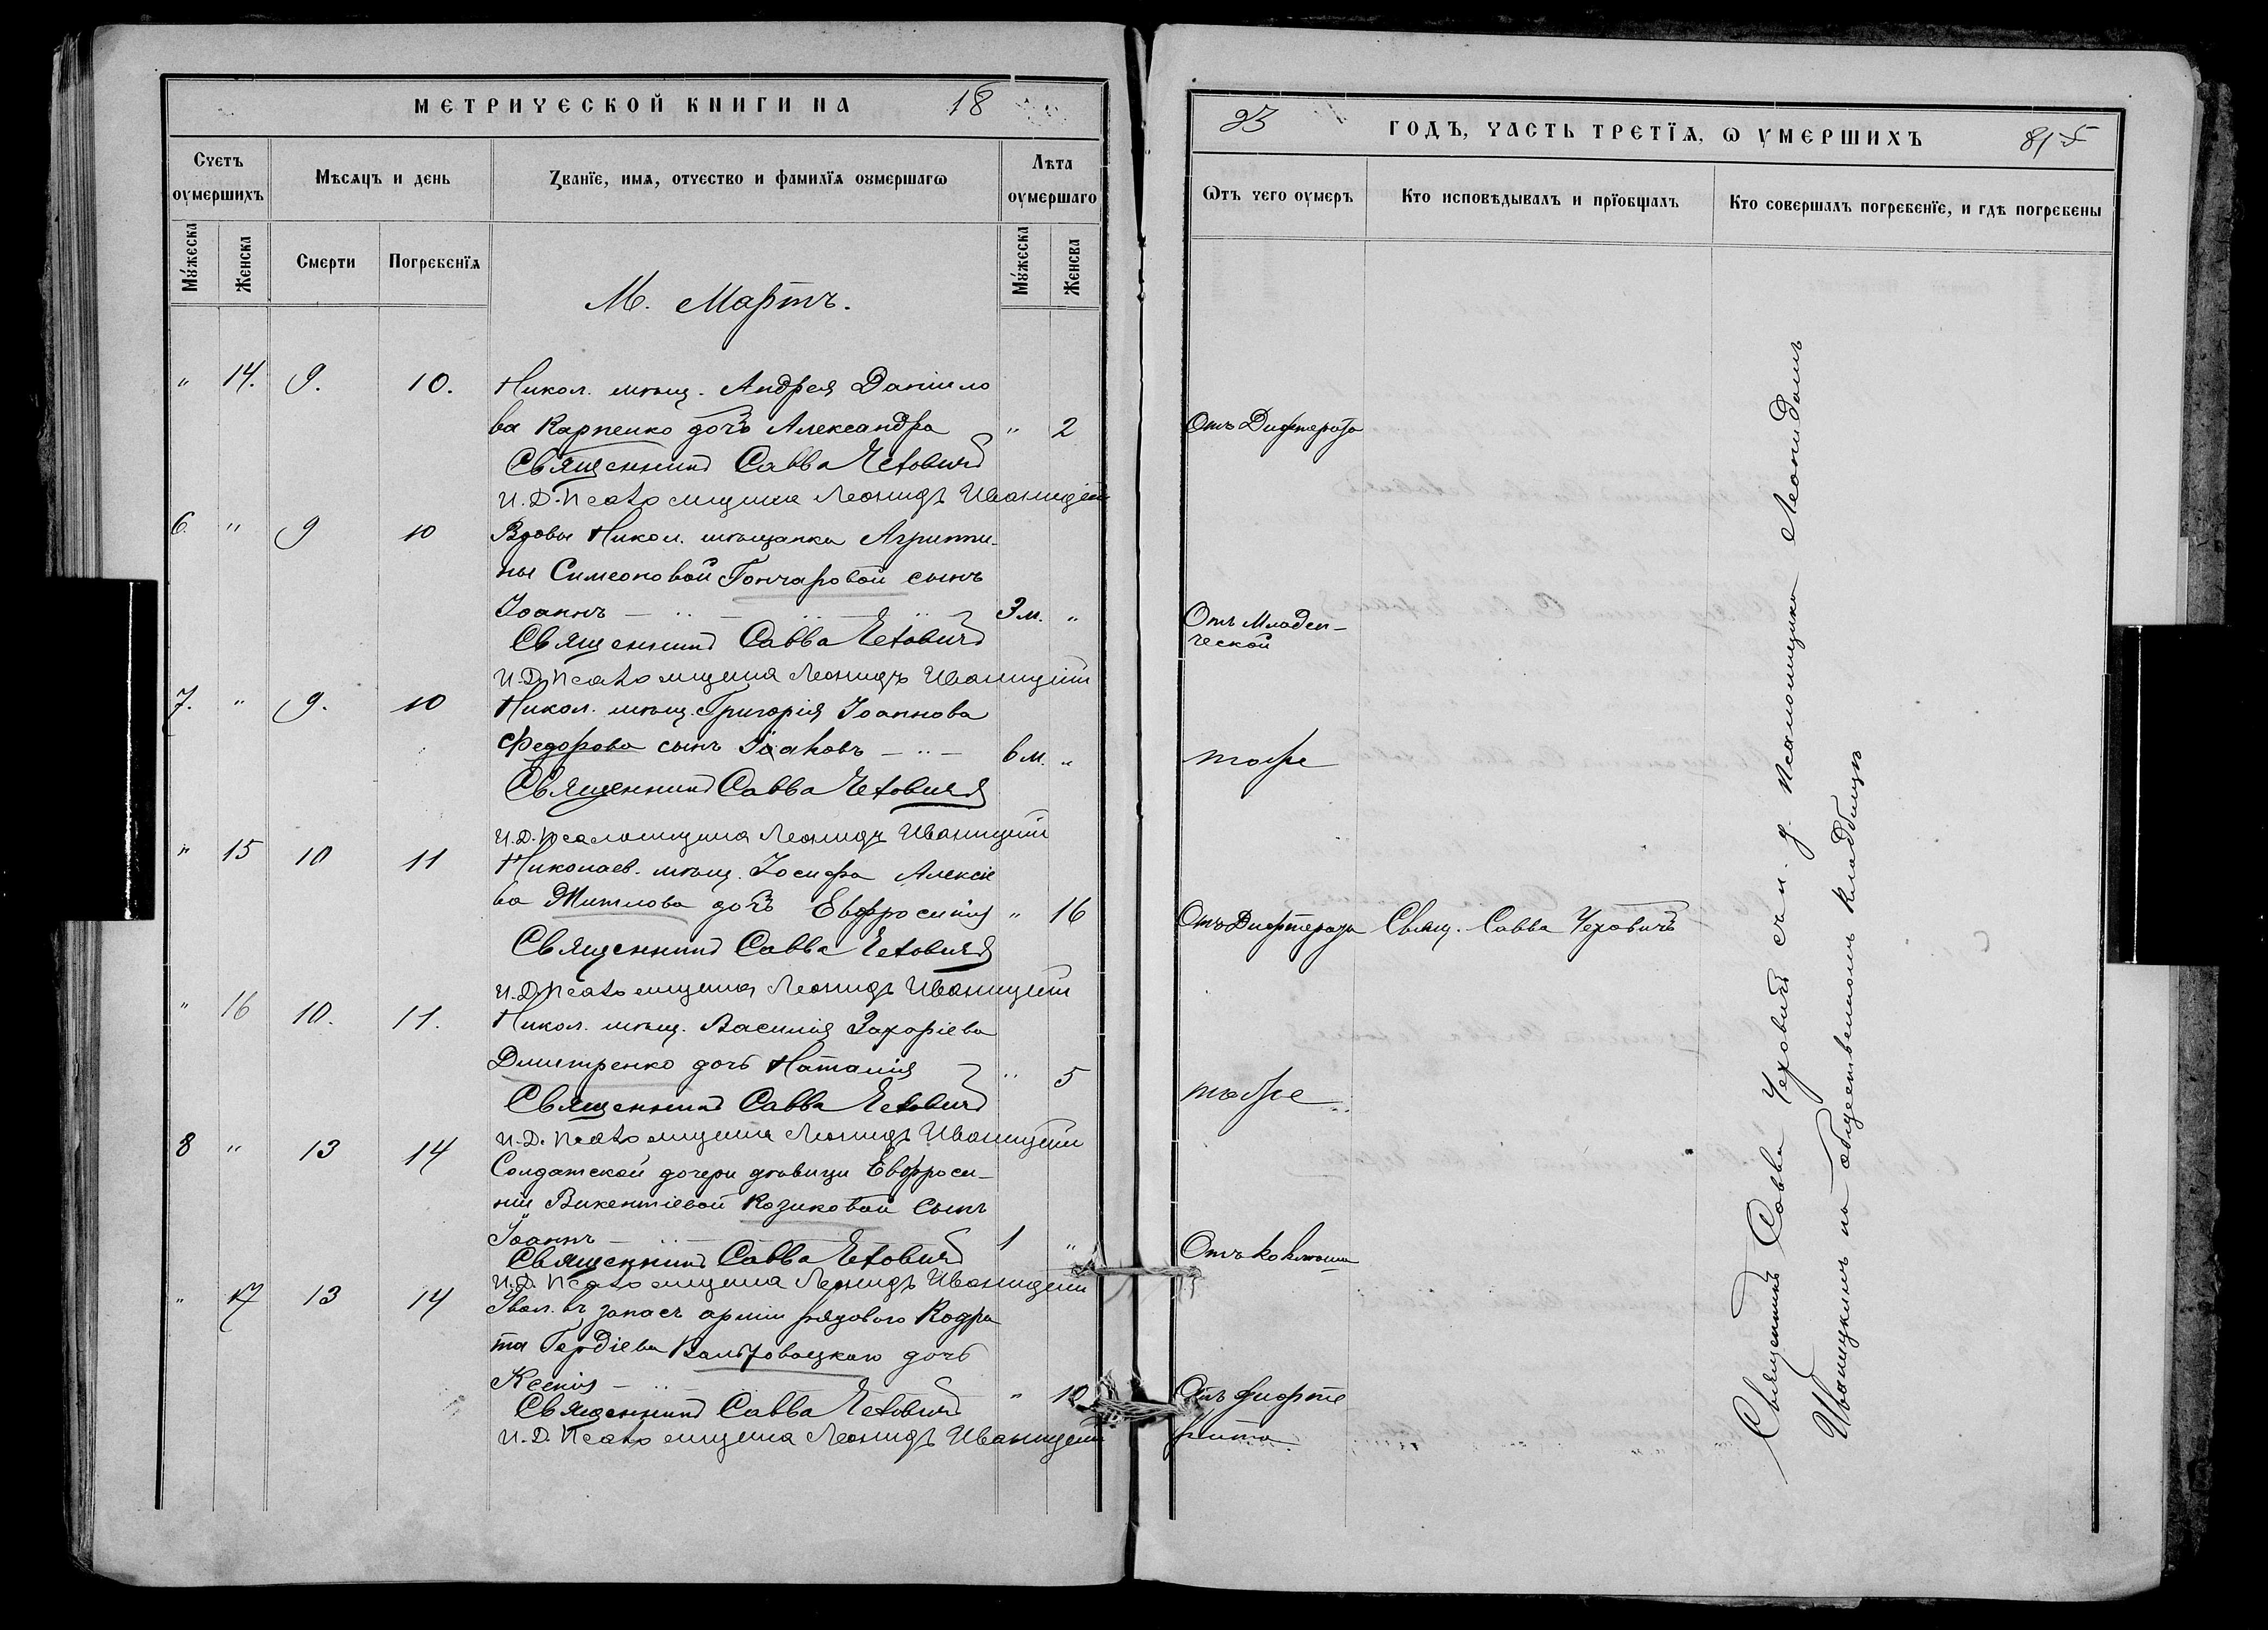 МЕТРИЧЕСКОЙ КНИГИ НА 18
Счетъ оумершихъ
Мѣсяцъ и день
Званїе, имѧ, отчество и фамилїѧ оумершагѡ
Лѣта оумершаго
Мꙋжеска
Женска
Смерти
Погребенїѧ
Мꙋжеска
Женска
М. Мартъ.
" 14. 9. 10. Никол. мѣщ. Андрея Данило
ва Карпенко дочь Александра " 2
Священникъ Савва Чеховичъ
И.Д. Псаломщика Леонидъ Иваницкій
6. " 9 10 Вдовы Никол. мѣщанки Агриппи-
ны Симеоновой Гончаровой сынъ
Іоаннъ 3 м. "
Священникъ Савва Чеховичъ
И.Д. Псаломщика Леонидъ Иваницкій
7. " 9. 10 Никол. мѣщ. Григорія Іоаннова
Федорова сынъ Іаковъ 6 м. "
Священникъ Савва Чеховичъ
И.Д. Псаломщика Леонидъ Иваницкій
" 15 10 11 Николаев. мѣщ. Іосифа Алексіе
ва Житлова дочь Евфросинія " 16
Священникъ Савва Чеховичъ
И.Д. Псаломщика Леонидъ Иваницкій
" 16 10. 11. Никол. мѣщ. Василія Захаріева
Дмитренко дочь Наталія " 5
Священникъ Савва Чеховичъ
И.Д. Псаломщика Леонидъ Иваницкій
8 " 13 14 Солдатской дочери дѣвицы Евфроси-
ніи Викентіевой Козиковой сынъ
Іоаннъ 1 "
Священникъ Савва Чеховичъ
И.Д. Псаломщика Леонидъ Иваницкій
" 17 13 14 Увол. въ запасъ арміи рядового Кодра
та Гордіева дочь
Ксенія " 10
Священникъ Савва Чеховичъ
И.Д. Псаломщика Леонидъ Иваницкій
93 ГОДЪ, ЧАСТЬ ТРЕТЇѦ, Ѡ УМЕРШИХЪ 815
Ѿтъ чего оумеръ
Кто исповѣдывалъ и прїобщалъ
Кто совершалъ погребенїе, и гдѣ погребены
Отъ Дифтерита
Отъ Младен-
ческой
тоже
Отъ Дифтерита Свящ. Савва Чеховичъ
тоже
Отъ коклюша
Отъ дифте
рита
Священникъ Савва Чеховичъ съ и. д. псаломщика Леонидомъ
Иваницкимъ на общественномъ кладбищѣ